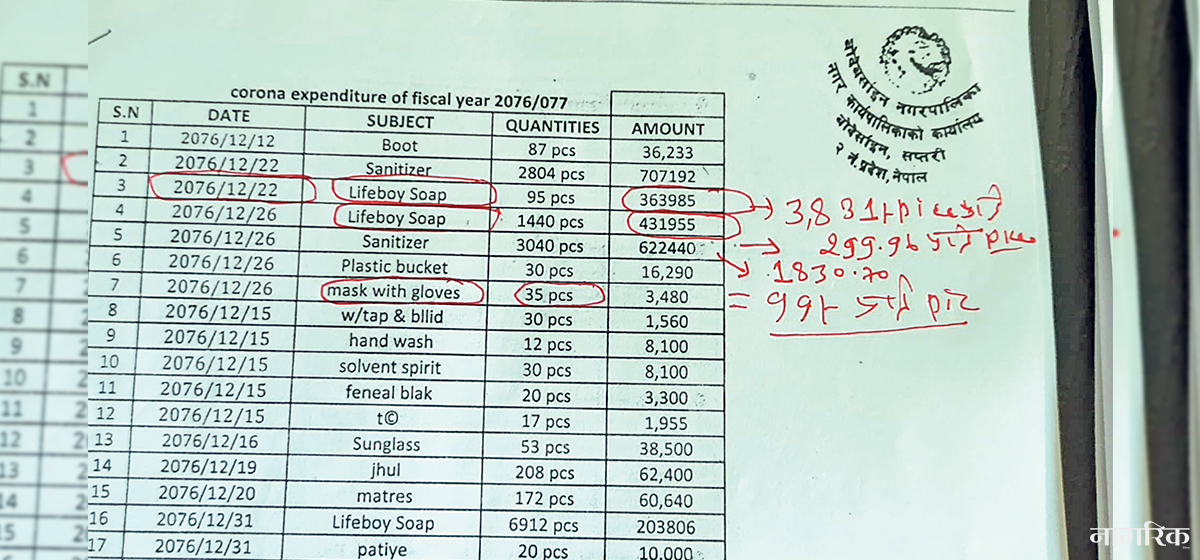 बोदेबरसाईन नगरपालिका
नगर कार्यपालिकाको कार्यालय
बोदेबरसाईन, सप्तरी
२ नं. प्रदेश, नेपाल
corona expenditure of fiscal year 2076/077
S.N DATE SUBJECT QUANTITIES AMOUNT
1 2076/12/12 Boot 87 pcs 36,233
2 2076/12/22 Sanitizer 2804 pcs 707192
3 2076/12/22 Lifeboy Soap 95 pcs 363985
4 2076/12/26 Lifeboy Soap 1440 pcs 431955
5 2076/12/26 Sanitizer 3040 pcs 622440
6 2076/12/26 Plastic bucket 30 pcs 16,290
7 2076/12/26 mask with gloves 35 pcs 3,480
8 2076/12/15 w/tap & bllid 30 pcs 1,560
9 2076/12/15 hand wash 12 pcs 8,100
10 2076/12/15 solvent spirit 30 pcs 8,100
11 2076/12/15 feneal blak 20 pcs 3,300
12 2076/12/15 t© 17 pcs 1,955
13 2076/12/16 Sunglass 53 pcs 38,500
14 2076/12/19 jhul 208 pcs 62,400
15 2076/12/20 matres 172 pcs 60,640
16 2076/12/31 Lifeboy Soap 6912 pcs 203806
17 2076/12/31 patiye 20 pcs 10,000
299.96 प्रति
1830.70
S.N
1
2
3
4
5
6
7
8
9
10
11
12
13
14
15
17
नागरिक